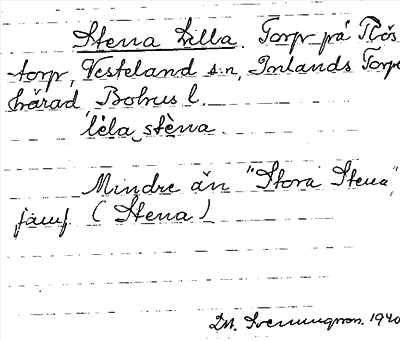 Stena Lilla. Torp på Rös
torp, Vesteland sn, Inlands Torpe
härad Bohus l.
lèla stèna
Mindre än "Stora Stena",
jämf (Stena)
1940